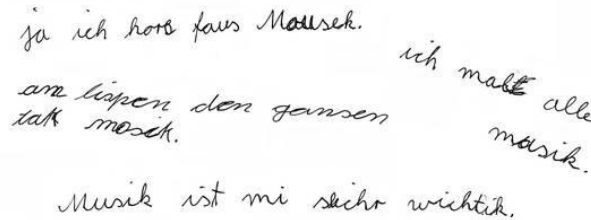 ja ich hors faus Mausek.
ich malt alle
masik.
am lispen den gansen
takt mosik.
Musik ist mi seichr wichtik.